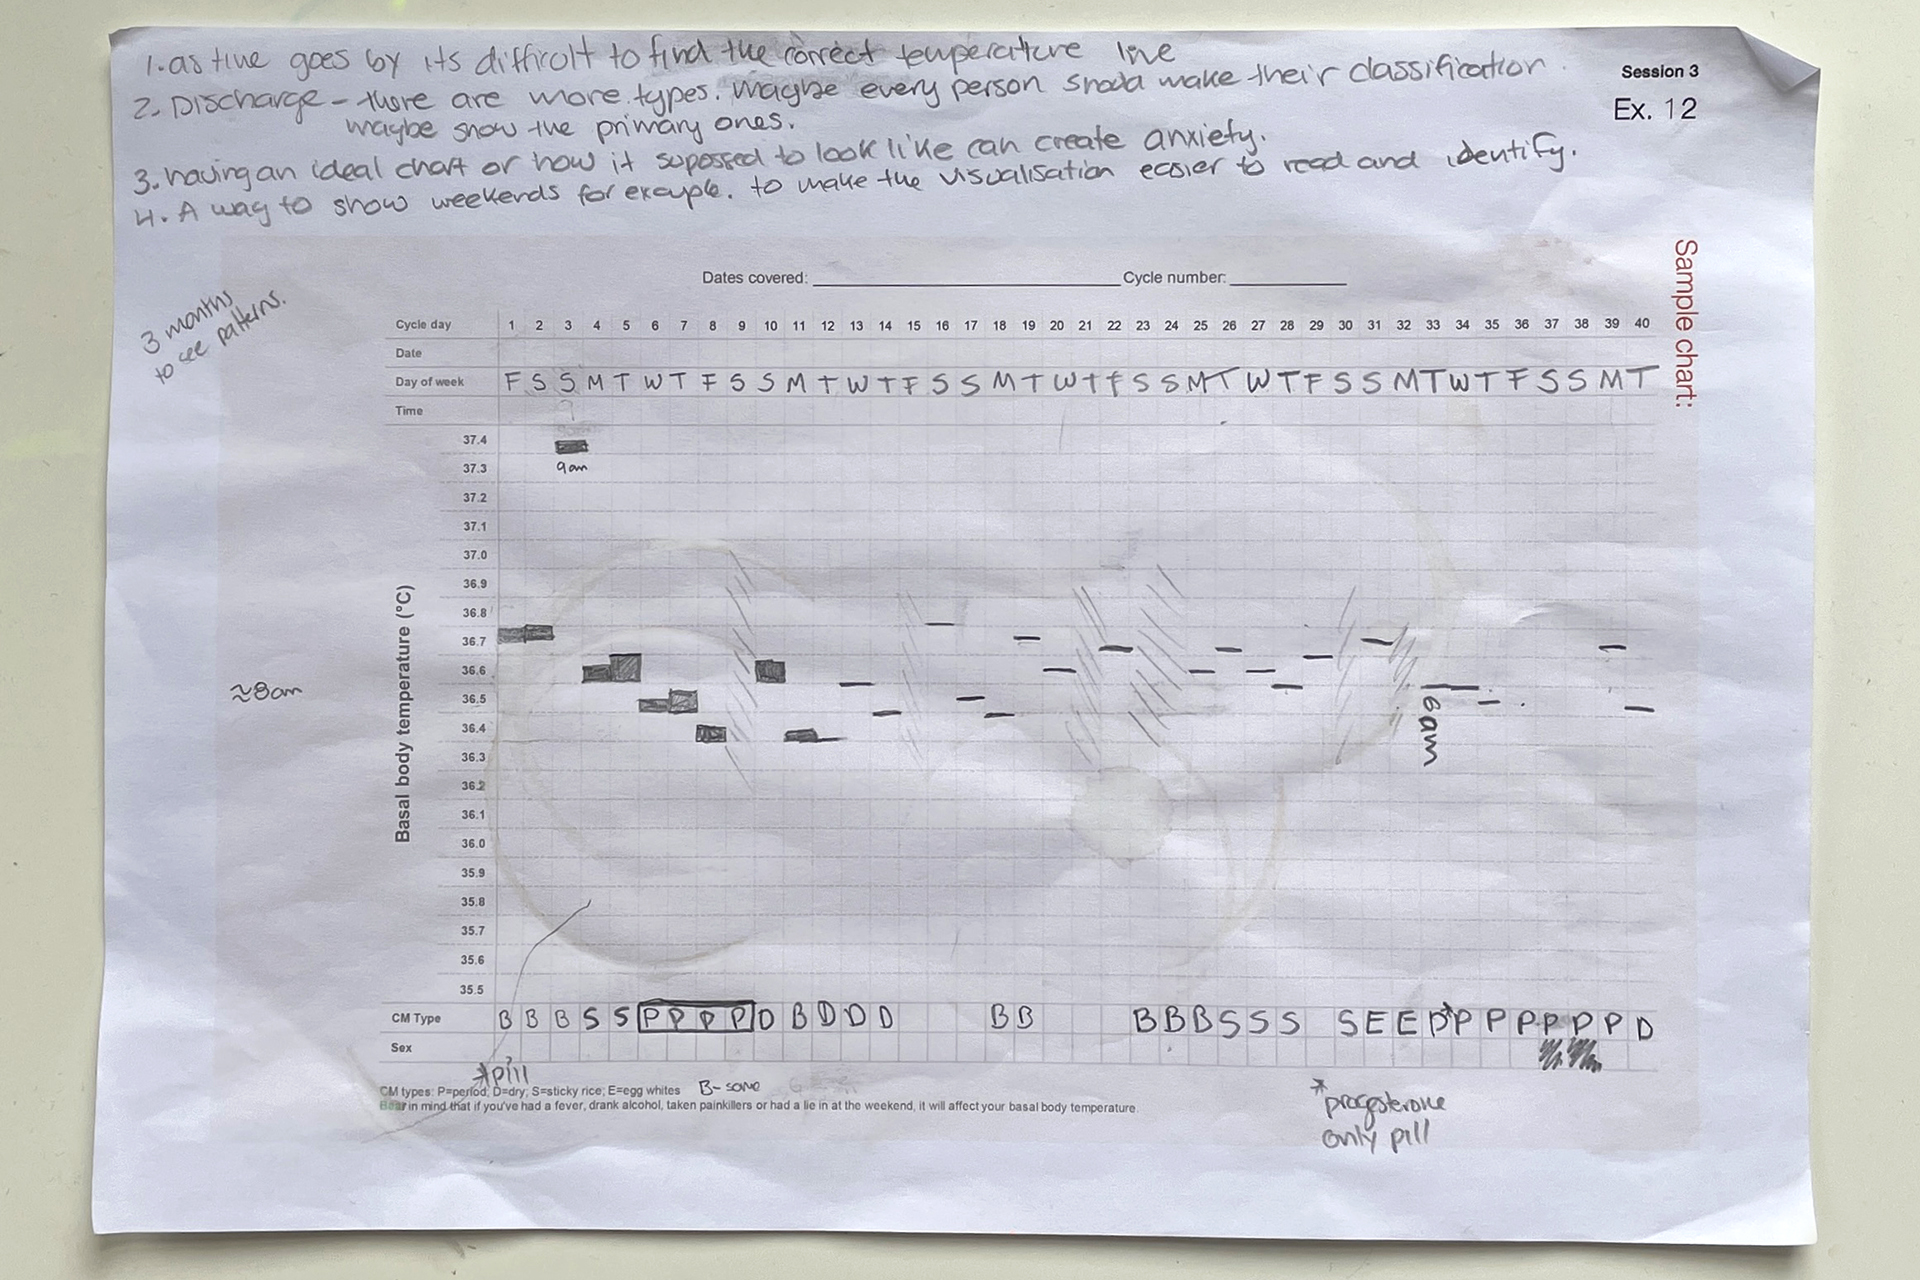 1. as time goes by its difficult to find the correct temperature line
2. Discharge - there are more types. maybe every person should make their classification.
maybe show the primary ones.
3. having an ideal chart or how it suposed to look like can create anxiety.
4. A way to show weekends for example. to make the visualisation easier to read and identify.
Session 3
Ex. 12
Sample chart:
3 months
to see patterns.
Dates covered: Cycle number:
Cycle day 1 2 3 4 5 6 7 8 9 10 11 12 13 14 15 16 17 18 19 20 21 22 23 24 25 26 27 28 29 30 31 32 33 34 35 36 37 38 39 40
Date
Day of week F S S M T W T F S S M T W T F S S M T W T F S S M T W T F S S M T W T F S S M T
Time
37.4
9am
37.3
37.2
37.1
37.0
36.9
36.8
36.7
36.6
36.5
36.4
36.3
36.2
36.1
36.0
35.9
35.8
35.7
35.6
35.5
Basal body temperature (°C)
≈8am
6am
CM Type B B B S S P P P P D B D D D B B B B B S S S S E E P* P P P P P P D
Sex
*pill
CM types: P=period, D=dry; S=sticky rice; E=egg whites B-some
Bear in mind that if you've had a fever, drank alcohol, taken painkillers or had a lie in at the weekend, it will affect your basal body temperature
*progesterone
only pill